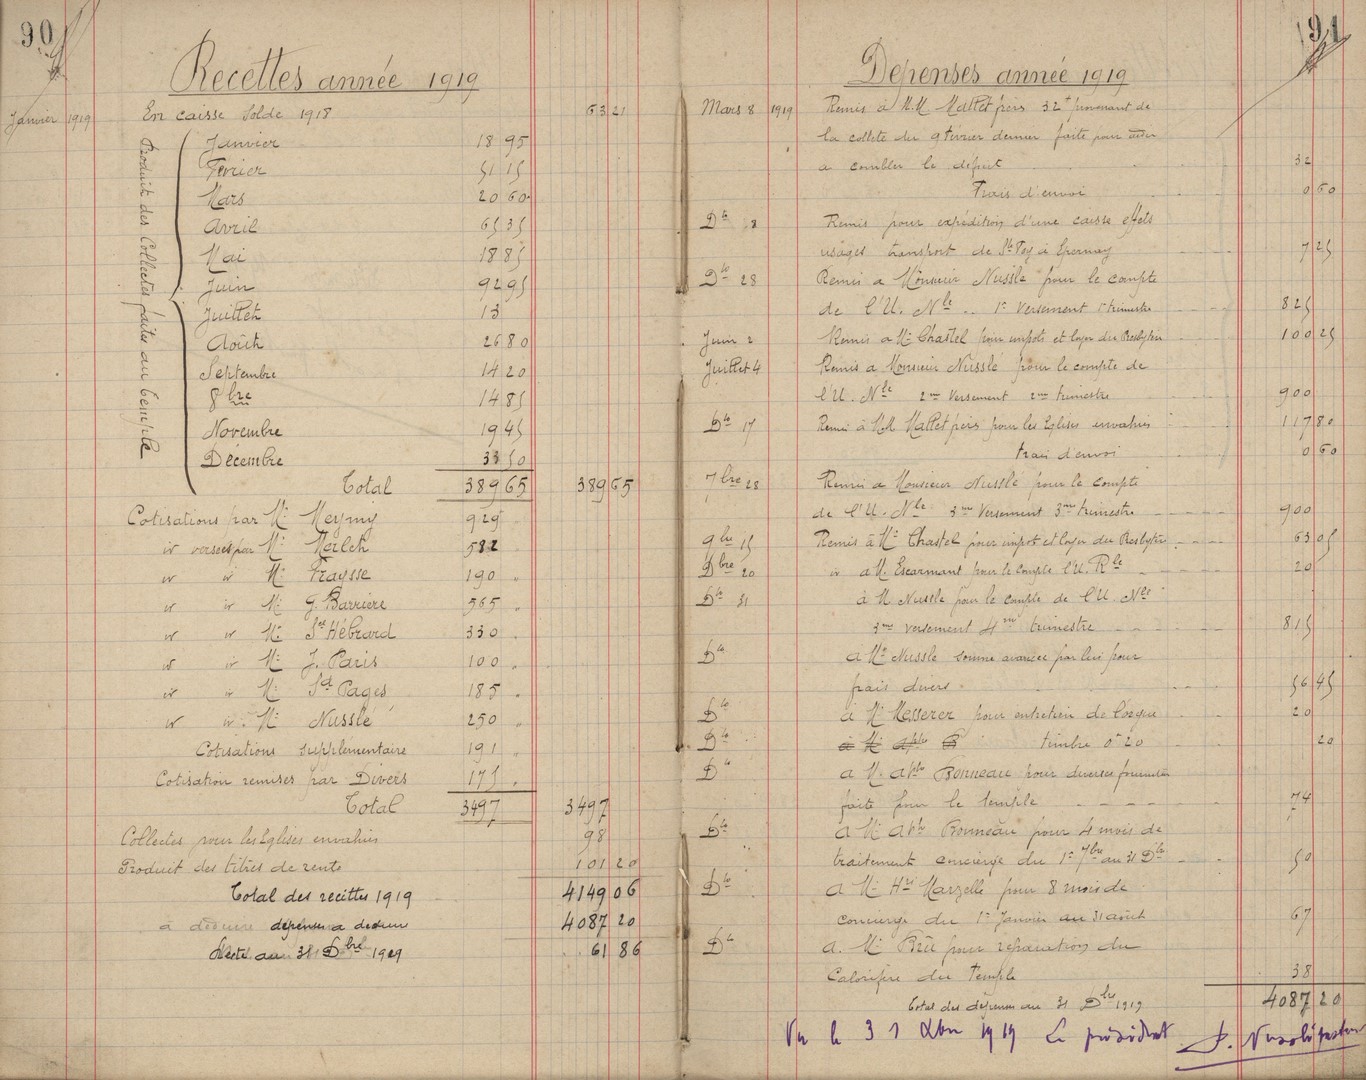 90
Recettes année 1919
Janvier 1919 En caisse Solde 1918 63 21
Produit des Collectes faites au temple
Janvier 18 95
Fevrier 51 15
Mars 20 60
Avril 65 35
Mai 18 85
Juin 92 95
Juillet 13
Août 26 80
Septembre 14 20
8bre 14 85
Novembre 19 45
Décembre 33 50
Total 389 65 389 65
Cotisations par Mr Meymy 929
id versées par Mr Merlch 582
id id Mr Fraysse 190 "
id id Mr G. Barrière 565 "
id id Mr St Hébrard 330 "
id id Mr J. Paris 100 "
id id Mr Sd Pages 185 "
id id Mr Nusslé 250 "
Cotisations supplémentaire 191 "
Cotisation remises par Divers 175 "
Total 3497 3497
Collectes pour les Eglises envahies 98
Produit des titres de rente 101 20
Total des recettes 1919 4149 06
à déduire dépenses a deduire 4087 20
Reste au 31 Dbre 1919 61 86
91
Dépenses année 1919
Mars 8 1919 Remis à M.M Mallet frères 32f provenant de
la collecte du 9 fevrier dernier faite pour aider
a combler le déficit 32
Frais d'envoi 0 60
Dto 8 Remis pour expédition d'une caisse effets
usagés transport de Ste Foy à Epernay 7 25
Dto 28 Remis a Monsieur Nusslé pour le compte
de l'U. Nle 1er Versement 1er trimestre 825
Juin 2 Remis a Mr Chastel pour impots et loyer du Presbytère 100 25
Juillet 4 Remis a Monsieur Nusslé pour le compte de
l'U. Nle 2me Versement 2me trimestre 900
Dto 17 Remis à M.M Mallet frères pour les Eglises envahies 117 80
frais d'envoi 0 60
7bre 28 Remis a Monsieur Nusslé pour le compte
de l'U. Nle 3me Versement 3me trimestre 900
9bre 15 Remis à Mr Chastel pour impot et loyer du Presbytère 63 05
Dbre 20 id a M. Escarmant pour le compte l'U. Rle 20
Dto 31 à M Nusslé pour le compte de l'U. Nle
3me versement 4me trimestre 815
Dto a Mr Nusslé somme avancée par lui pour
frais divers 56 45
Dto à Mr Messerer pour entretien de l'orgue 20
Dto à Mr Aphte B timbre 0f20 20
Dto a M. Aphte Bonneau pour diverses fournitures
faite pour le temple 74
Dto a Mr Aphte Bonneau pour 4 mois de
traitement concierge du 1er 7bre au 31 Dbre 50
Dto a Mr Hri Marzelle pour 8 mois de
concierge du 1er Janvier au 31 août 67
Dto a Mr Brü pour réparations du
Calorifère du temple 38
Total des dépenses au 31 Dbre 1919 4087 20
Vu le 31 Xbre 1919 Le président J. Nusslé pasteur